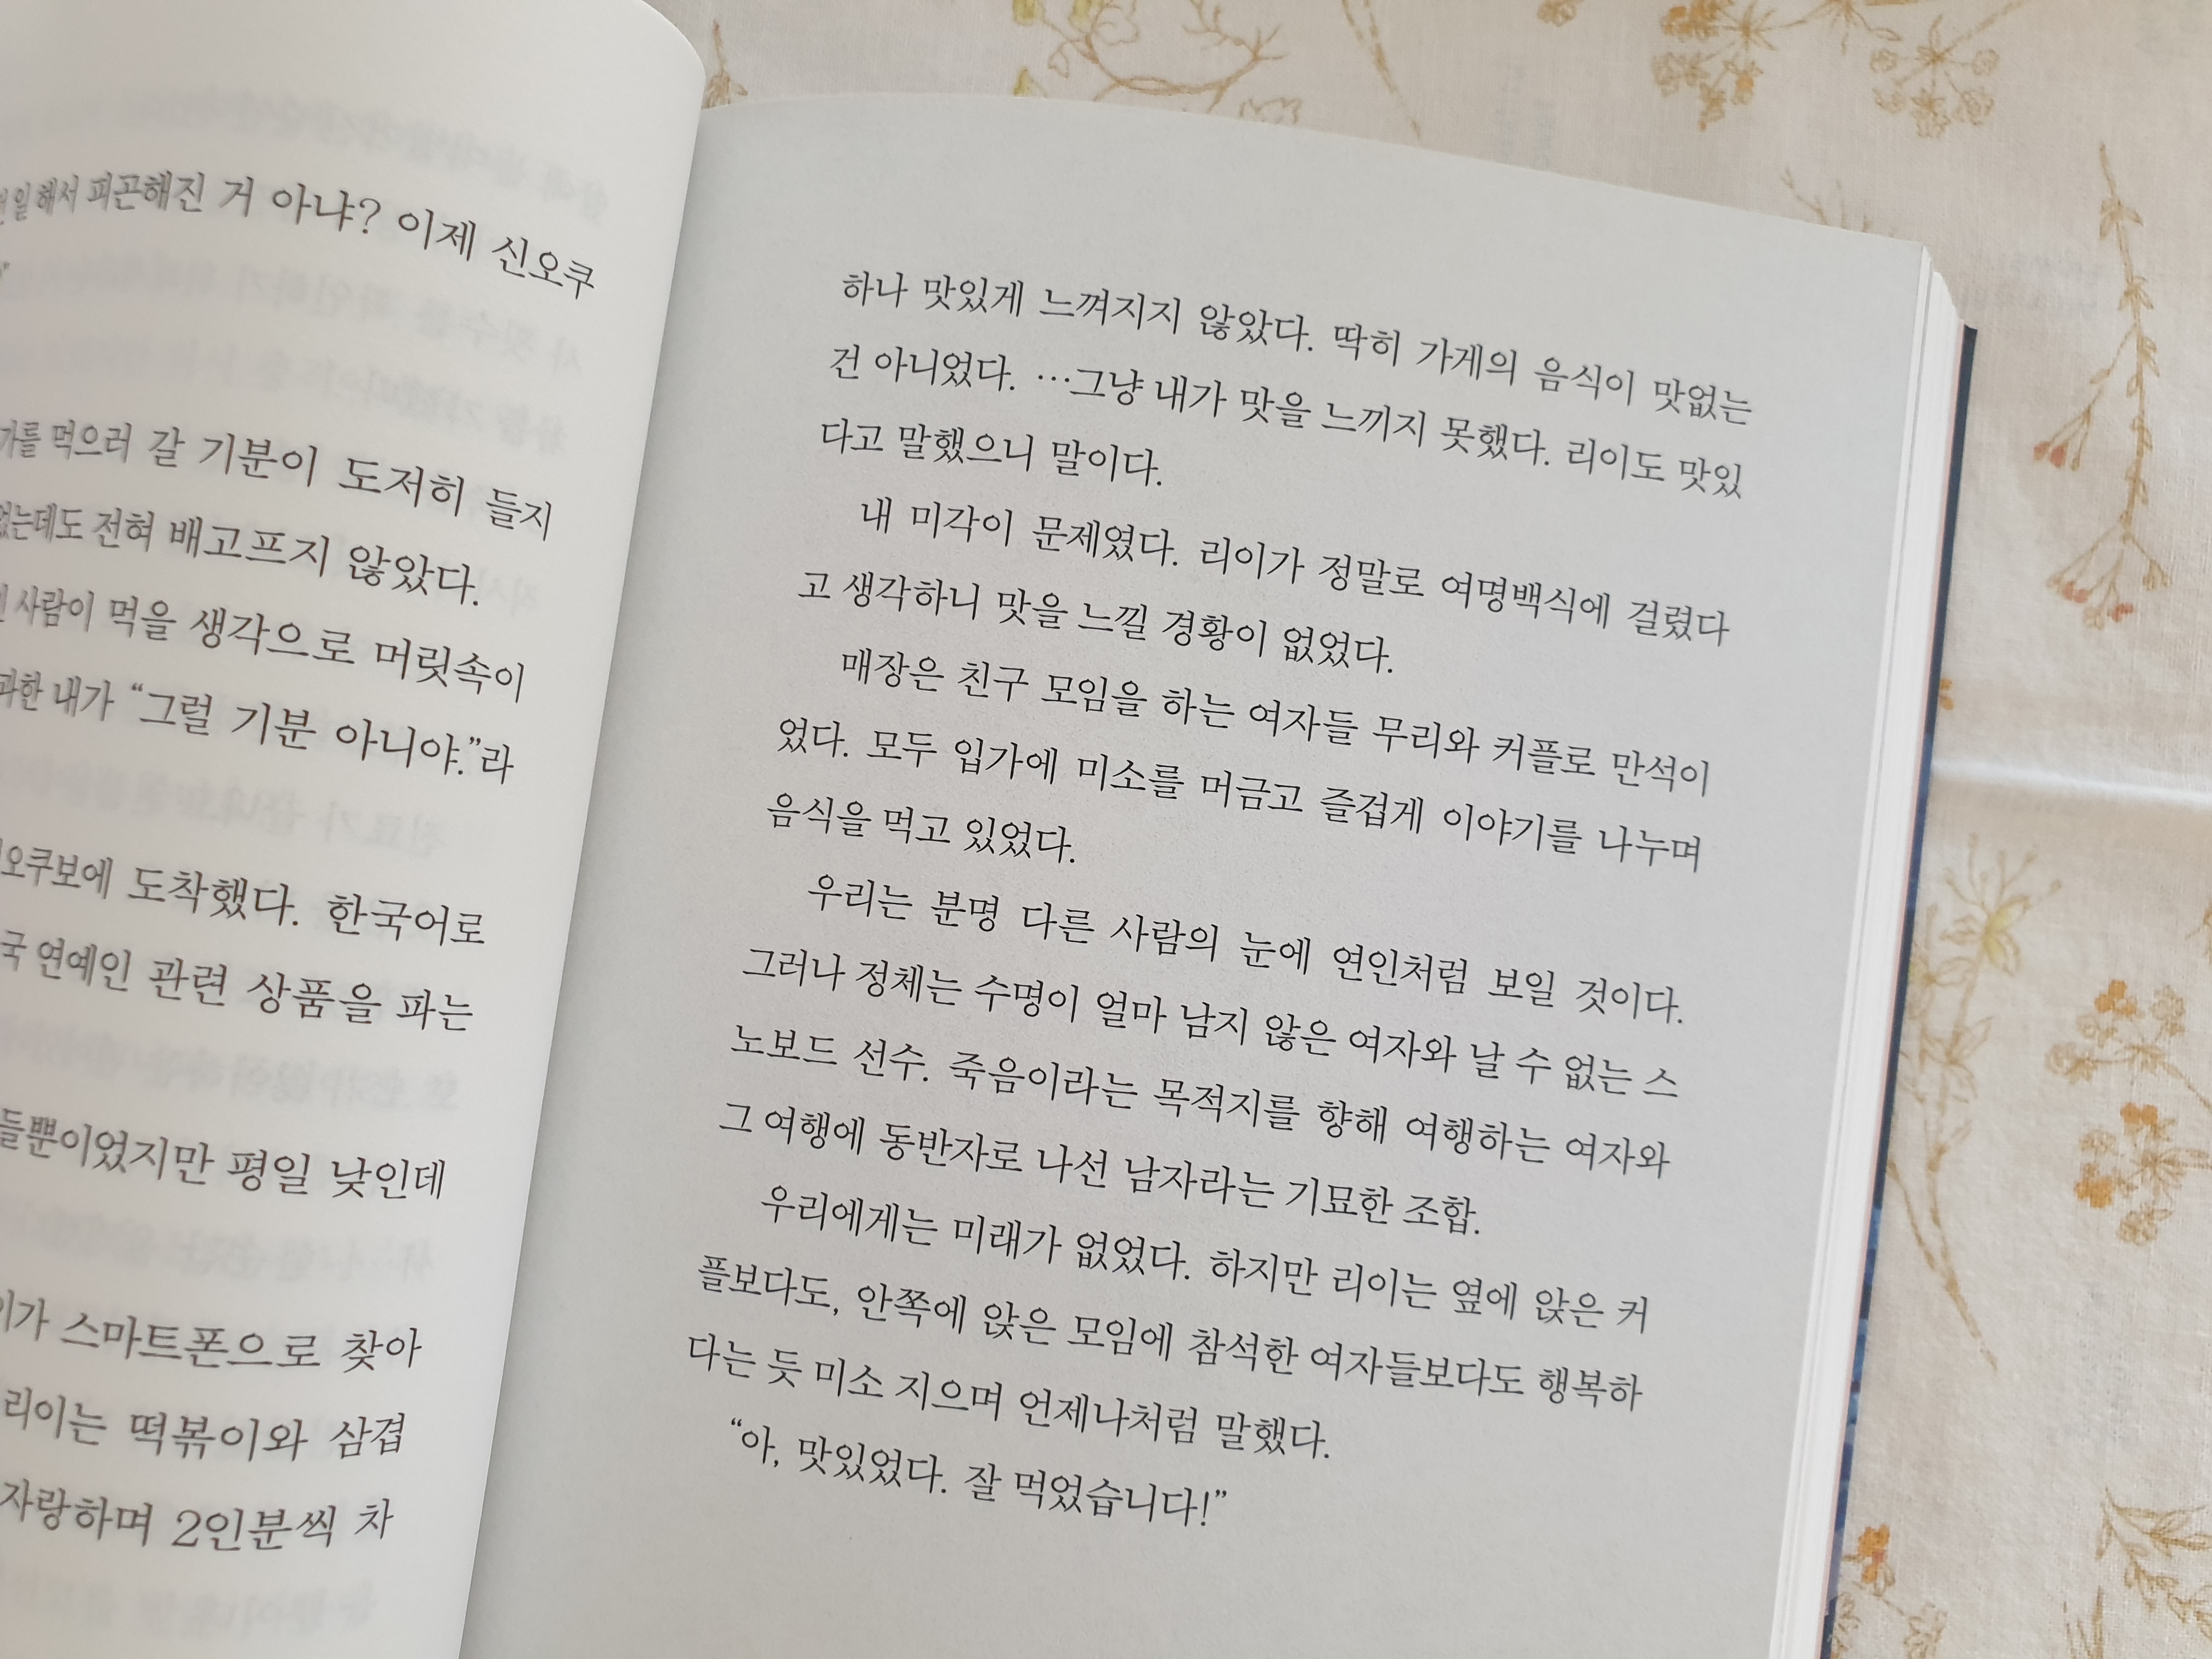 일해서 피곤해진 거 아냐? 이제 신오쿠
먹으러 갈 기분이 도저히 들지
전혀 배고프지 않았다.
사람이 먹을 생각으로 머릿속이
내가 “그럴 기분 아니야.”라
도착했다. 한국어로
연예인 관련 상품을 파는
평일 낮인데
스마트폰으로 찾아
리이는 떡볶이와 삼겹
자랑하며 2인분씩 차
하나 맛있게 느껴지지 않았다. 딱히 가게의 음식이 맛없는
건 아니었다. …그냥 내가 맛을 느끼지 못했다. 리이도 맛있
다고 말했으니 말이다.
내 미각이 문제였다. 리이가 정말로 여명백식에 걸렸다
고 생각하니 맛을 느낄 경황이 없었다.
매장은 친구 모임을 하는 여자들 무리와 커플로 만석이
었다. 모두 입가에 미소를 머금고 즐겁게 이야기를 나누며
음식을 먹고 있었다.
우리는 분명 다른 사람의 눈에 연인처럼 보일 것이다.
그러나 정체는 수명이 얼마 남지 않은 여자와 날 수 없는 스
노보드 선수. 죽음이라는 목적지를 향해 여행하는 여자와
그 여행에 동반자로 나선 남자라는 기묘한 조합.
우리에게는 미래가 없었다. 하지만 리이는 옆에 앉은 커
플보다도, 안쪽에 앉은 모임에 참석한 여자들보다도 행복하
다는 듯 미소 지으며 언제나처럼 말했다.
“아, 맛있었다. 잘 먹었습니다!”